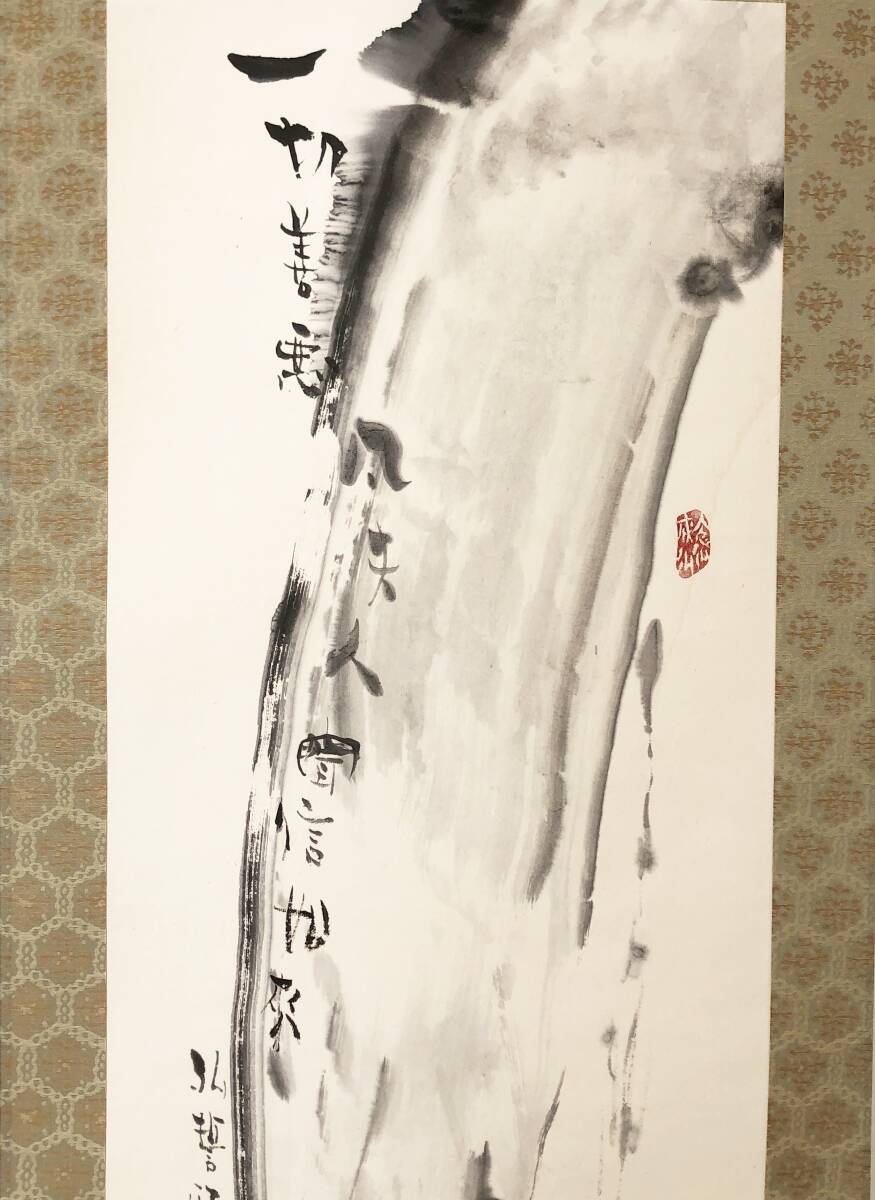 一切善悪凡夫人聞信如来
弘誓